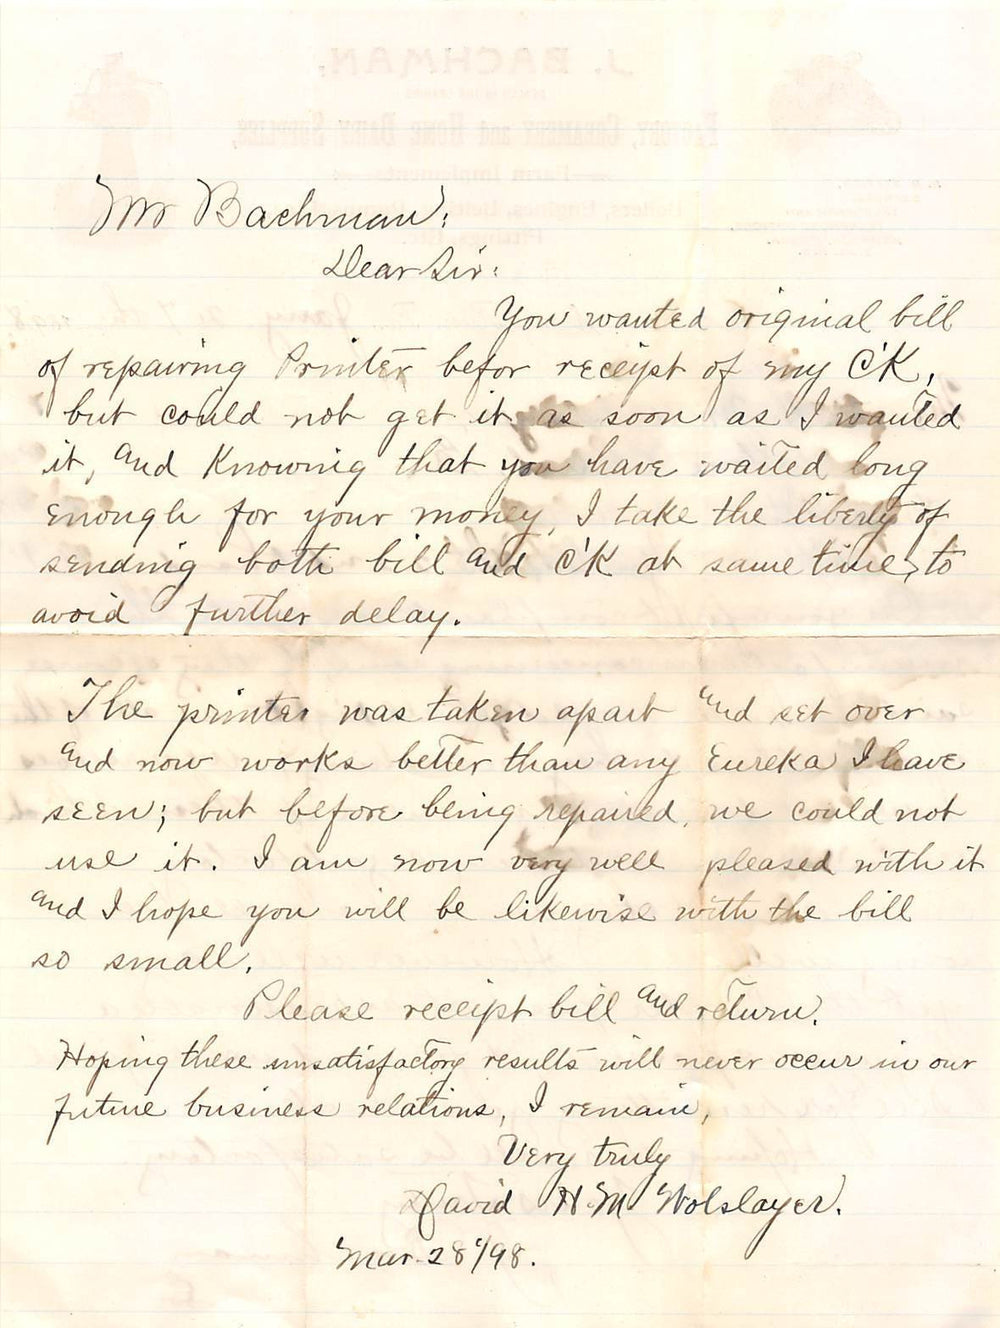 Mr Bachman:
Dear Sir:
You wanted original bill
of repairing Printer befor receipt of my C'K,
but could not get it as soon as I wanted
it, and Knowing that you have waited long
enough for your money, I take the liberty of
sending both bill and C'K at same time, to
avoid further delay.
The printer was taken apart and set over
and now works better than any Eureka I have
seen; but before being repaired, we could not
use it. I am now very well pleased with it
and I hope you will be likewise with the bill
so small.
Please receipt bill and return.
Hoping these unsatisfactory results will never occur in our
future business relations, I remain,
Very truly
David H. M Wolslayer.
Mar. 28/98.